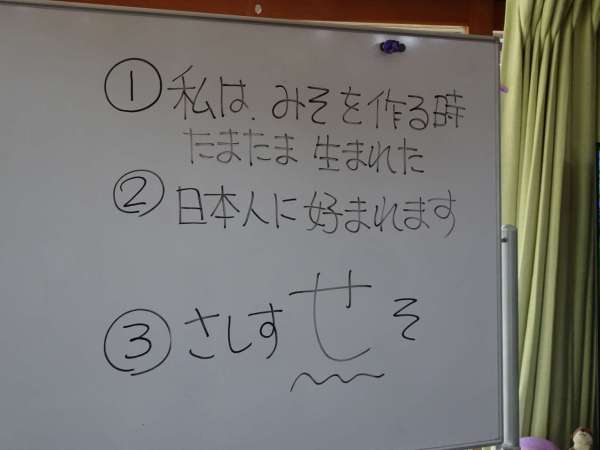 ① 私は、みそを作る時
たまたま 生まれた
② 日本人に好まれます
③ さしすせそ